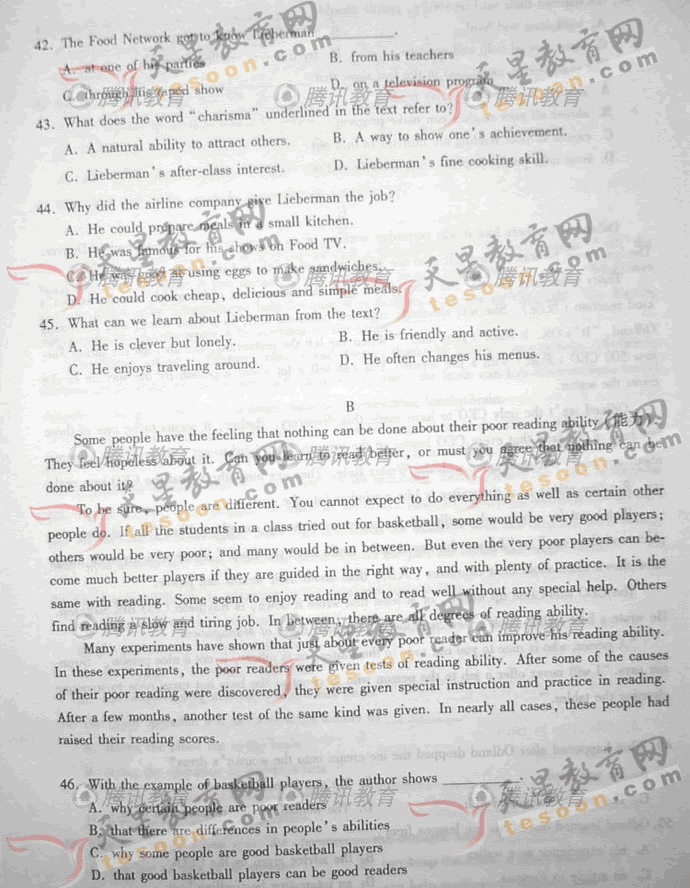 42. The Food Network got to know Lieberman __________.
A. at one of his parties B. from his teachers
C. through his taped show D. on a television program
43. What does the word “charisma” underlined in the text refer to?
A. A natural ability to attract others. B. A way to show one's achievement.
C. Lieberman's after-class interest. D. Lieberman's fine cooking skill.
44. Why did the airline company give Lieberman the job?
A. He could prepare meals in a small kitchen.
B. He was famous for his shows on Food TV.
C. He was good at using eggs to make sandwiches.
D. He could cook cheap, delicious and simple meals.
45. What can we learn about Lieberman from the text?
A. He is clever but lonely. B. He is friendly and active.
C. He enjoys traveling around. D. He often changes his menus.
B
Some people have the feeling that nothing can be done about their poor reading ability (能力).
They feel hopeless about it. Can you learn to read better, or must you agree that nothing can be
done about it?
To be sure, people are different. You cannot expect to do everything as well as certain other
people do. If all the students in a class tried out for basketball, some would be very good players;
others would be very poor; and many would be in between. But even the very poor players can be-
come much better players if they are guided in the right way, and with plenty of practice. It is the
same with reading. Some seem to enjoy reading and to read well without any special help. Others
find reading a slow and tiring job. In between, there are all degrees of reading ability.
Many experiments have shown that just about every poor reader can improve his reading ability.
In these experiments, the poor readers were given tests of reading ability. After some of the causes
of their poor reading were discovered, they were given special instruction and practice in reading.
After a few months, another test of the same kind was given. In nearly all cases, these people had
raised their reading scores.
46. With the example of basketball players, the author shows __________.
A. why certain people are poor readers
B. that there are differences in people's abilities
C. why some people are good basketball players
D. that good basketball players can be good readers
天星教育网
tesoon.com
腾讯教育